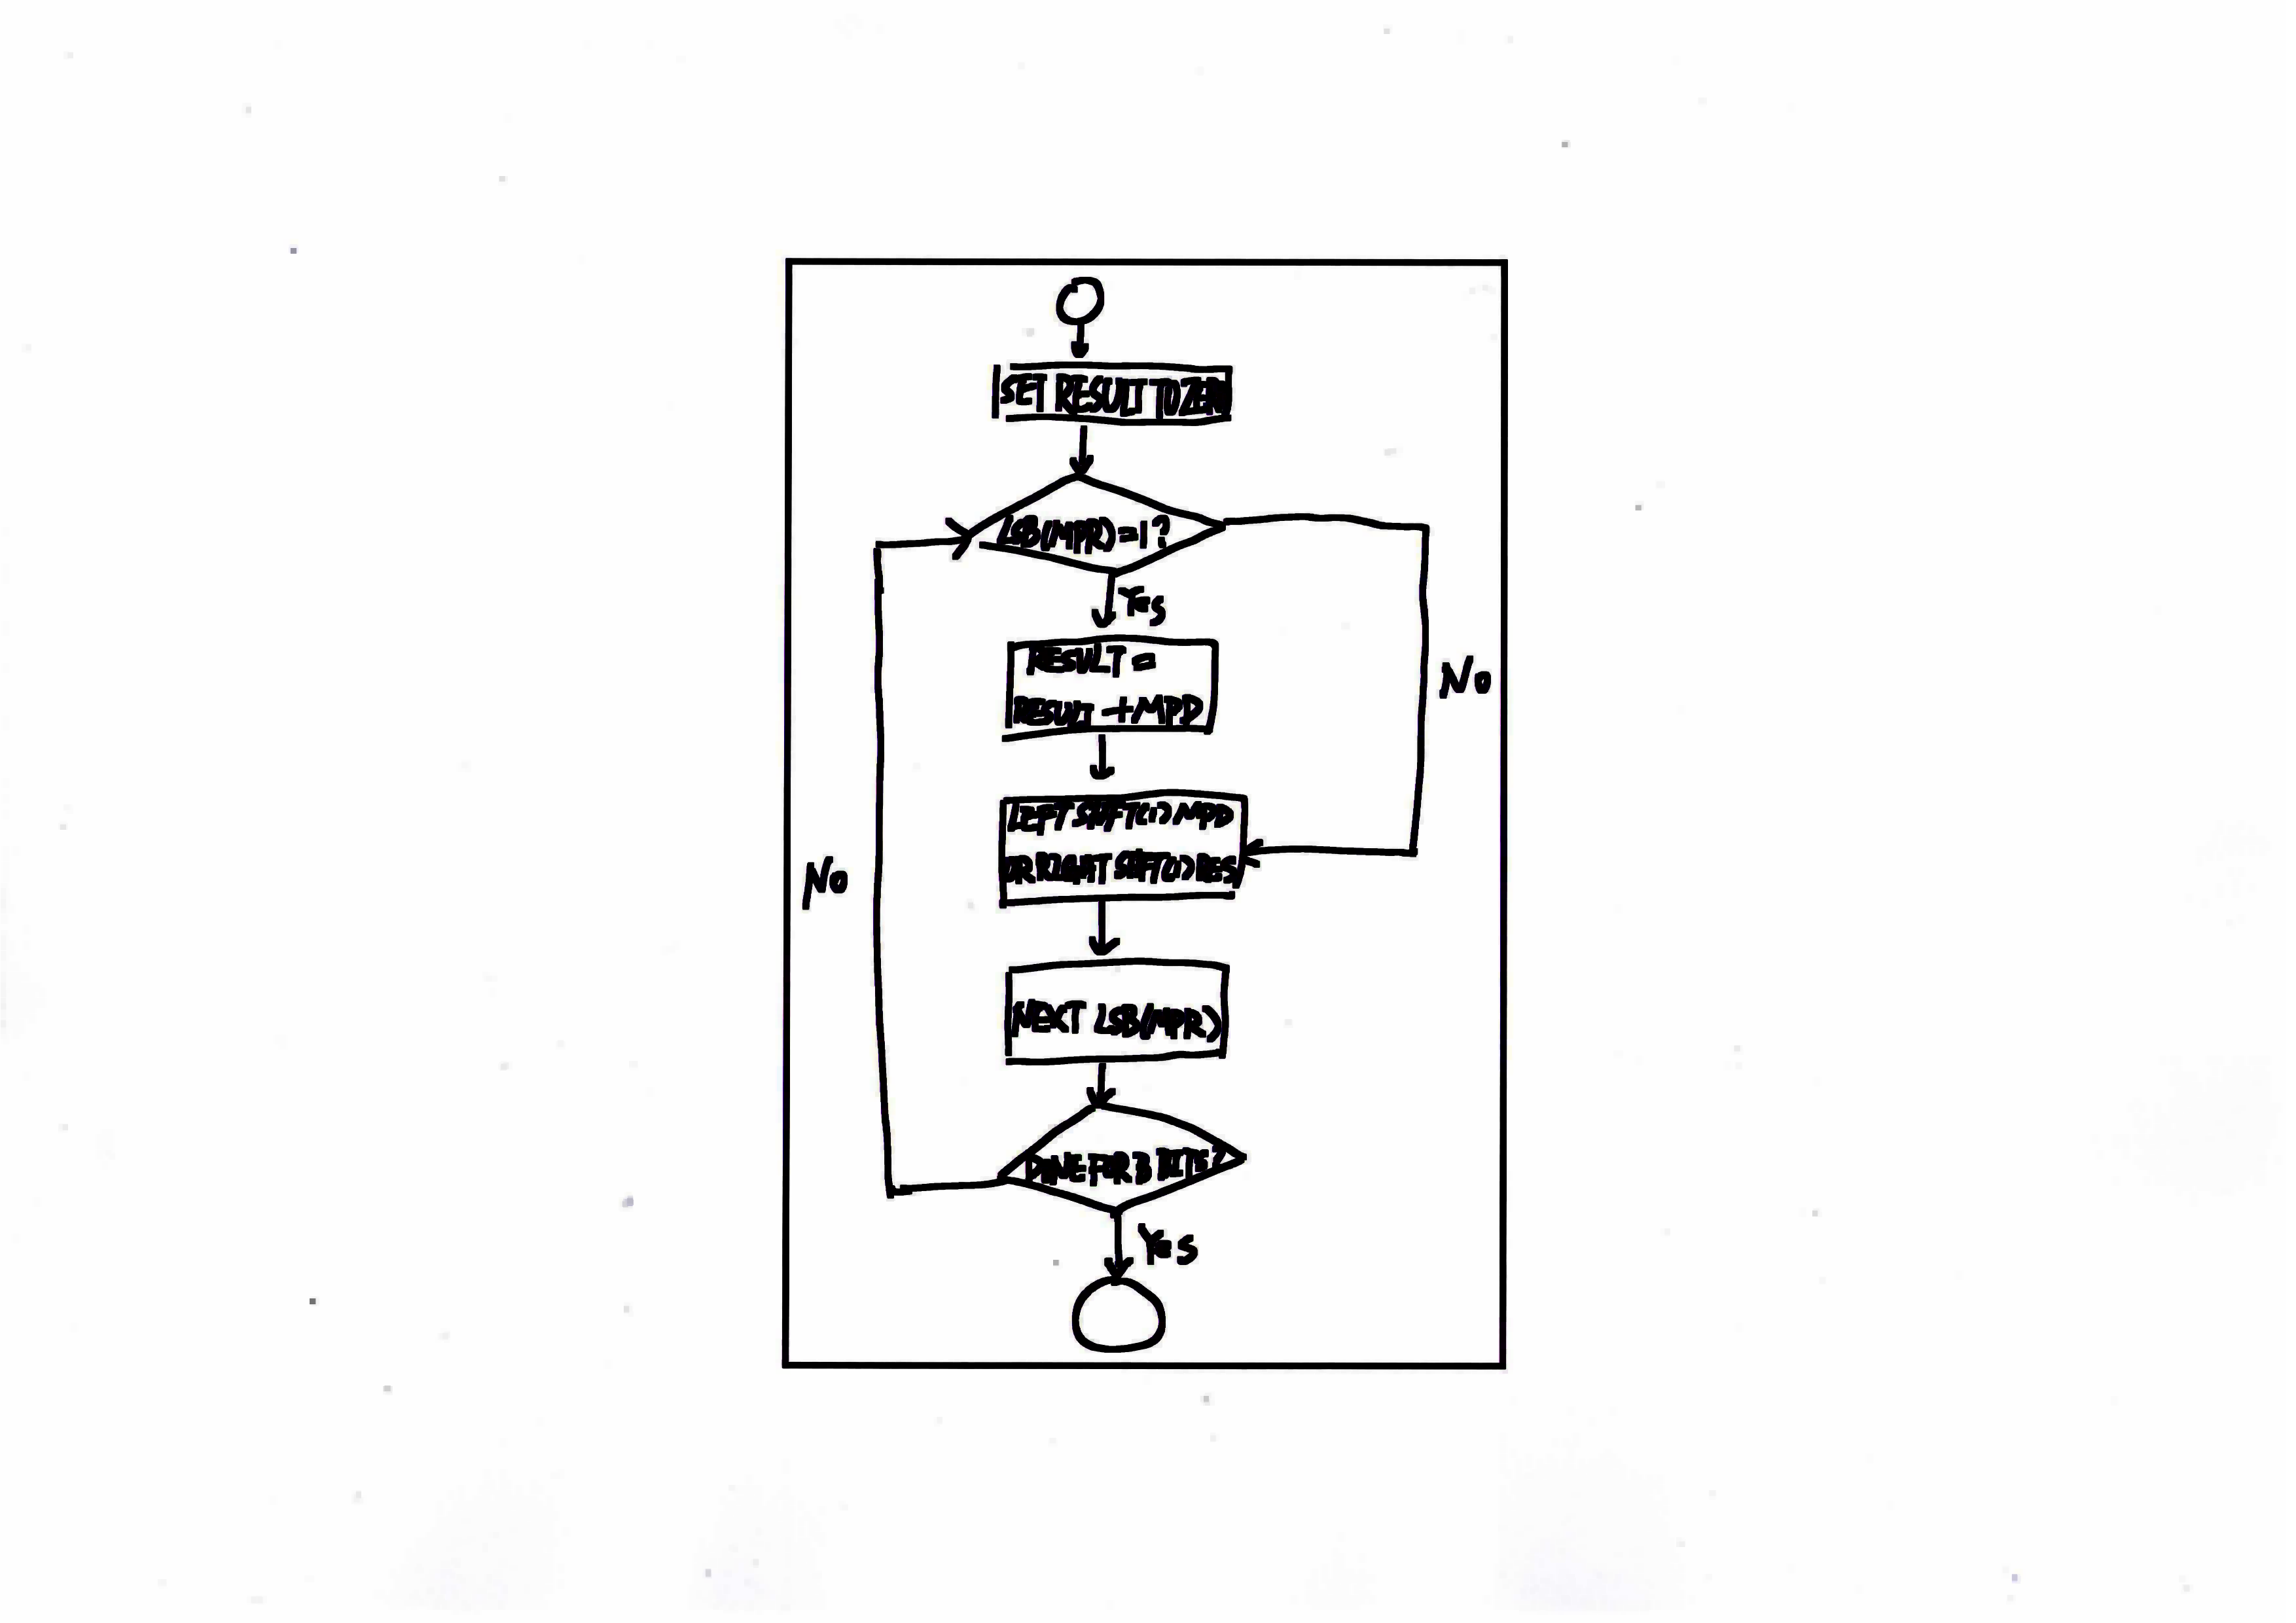 SET RESULT TO ZERO
LSB(MPR)=1?
Yes
RESULT =
RESULT +MPD
No
LEFT SHIFT(1) MPD
OR RIGHT SHIFT(1) RES
No
NEXT LSB(MPR)
DONE FOR BITS?
Yes